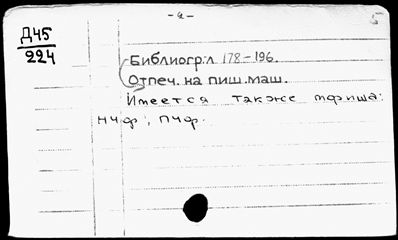 -2-
Д45
224
Библиогр: л 178-196.
Отпеч. на пиш. маш.
Имеется также мфиша:
НЧФ; ПЧФ.